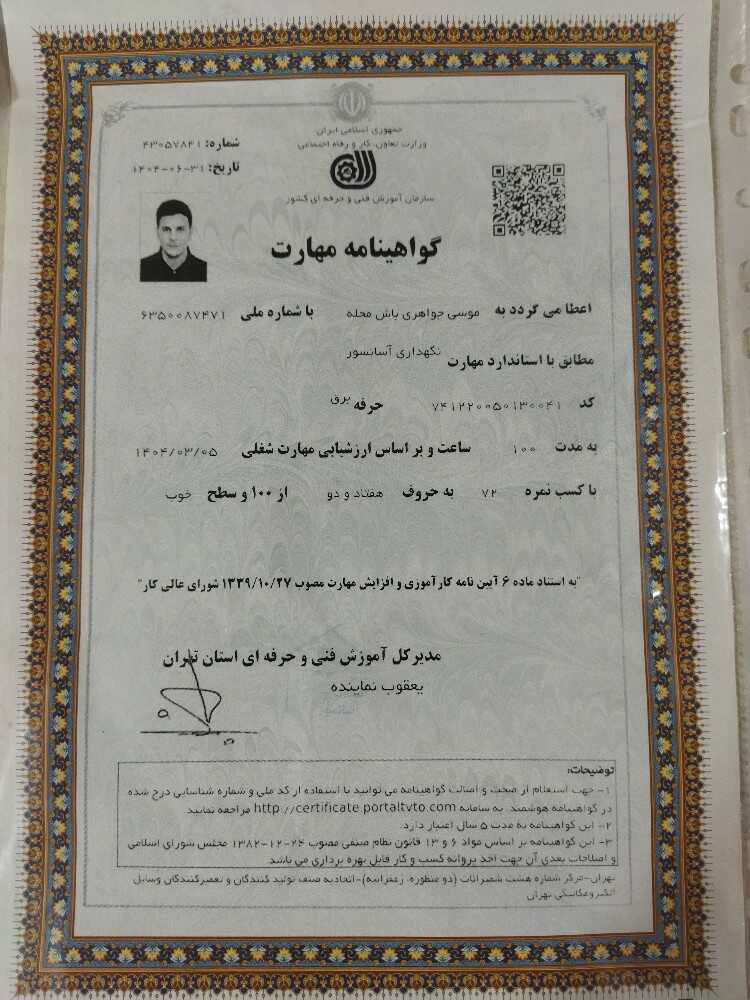 جمهوری اسلامی ایران
وزارت تعاون، کار و رفاه اجتماعی
سازمان آموزش فنی و حرفه ای کشور
شماره: ۴۳۰۵۷۸۴۱
تاریخ: ۱۴۰۴-۰۶-۳۱
گواهینامه مهارت
اعطا می گردد به موسی جواهری باش محله با شماره ملی ۶۳۵۰۰۸۷۴۷۱
مطابق با استاندارد مهارت نگهداری آسانسور
کد ۷۴۱۲۲۰۰۵۰۱۳۰۰۴۱ حرفه برق
به مدت ۱۰۰ ساعت و بر اساس ارزشیابی مهارت شغلی ۱۴۰۴/۰۳/۰۵
با کسب نمره ۷۲ به حروف هفتاد و دو از ۱۰۰ و سطح خوب
"به استناد ماده ۶ آیین نامه کارآموزی و افزایش مهارت مصوب ۱۳۳۹/۱۰/۲۷ شورای عالی کار"
مدیرکل آموزش فنی و حرفه ای استان تهران
یعقوب نماینده
توضیحات:
۱- جهت استعلام از صحت و اصالت گواهینامه می توانید با استفاده از کد ملی و شماره شناسایی درج شده
در گواهینامه هوشمند، به سامانه http://certificate.portaltvto.com مراجعه نمایید
۲- این گواهینامه به مدت ۵ سال اعتبار دارد.
۳- این گواهینامه بر اساس مواد ۶ و ۱۳ قانون نظام صنفی مصوب ۲۴-۱۲-۱۳۸۲ مجلس شورای اسلامی
و اصلاحات بعدی آن جهت اخذ پروانه کسب و کار قابل بهره برداری می باشد
تهران-مرکز شماره هشت شمیرانات (دو منظوره، زعفرانیه)-اتحادیه صنف تولید کنندگان و تعمیرکنندگان وسایل
الکترومکانیکی تهران